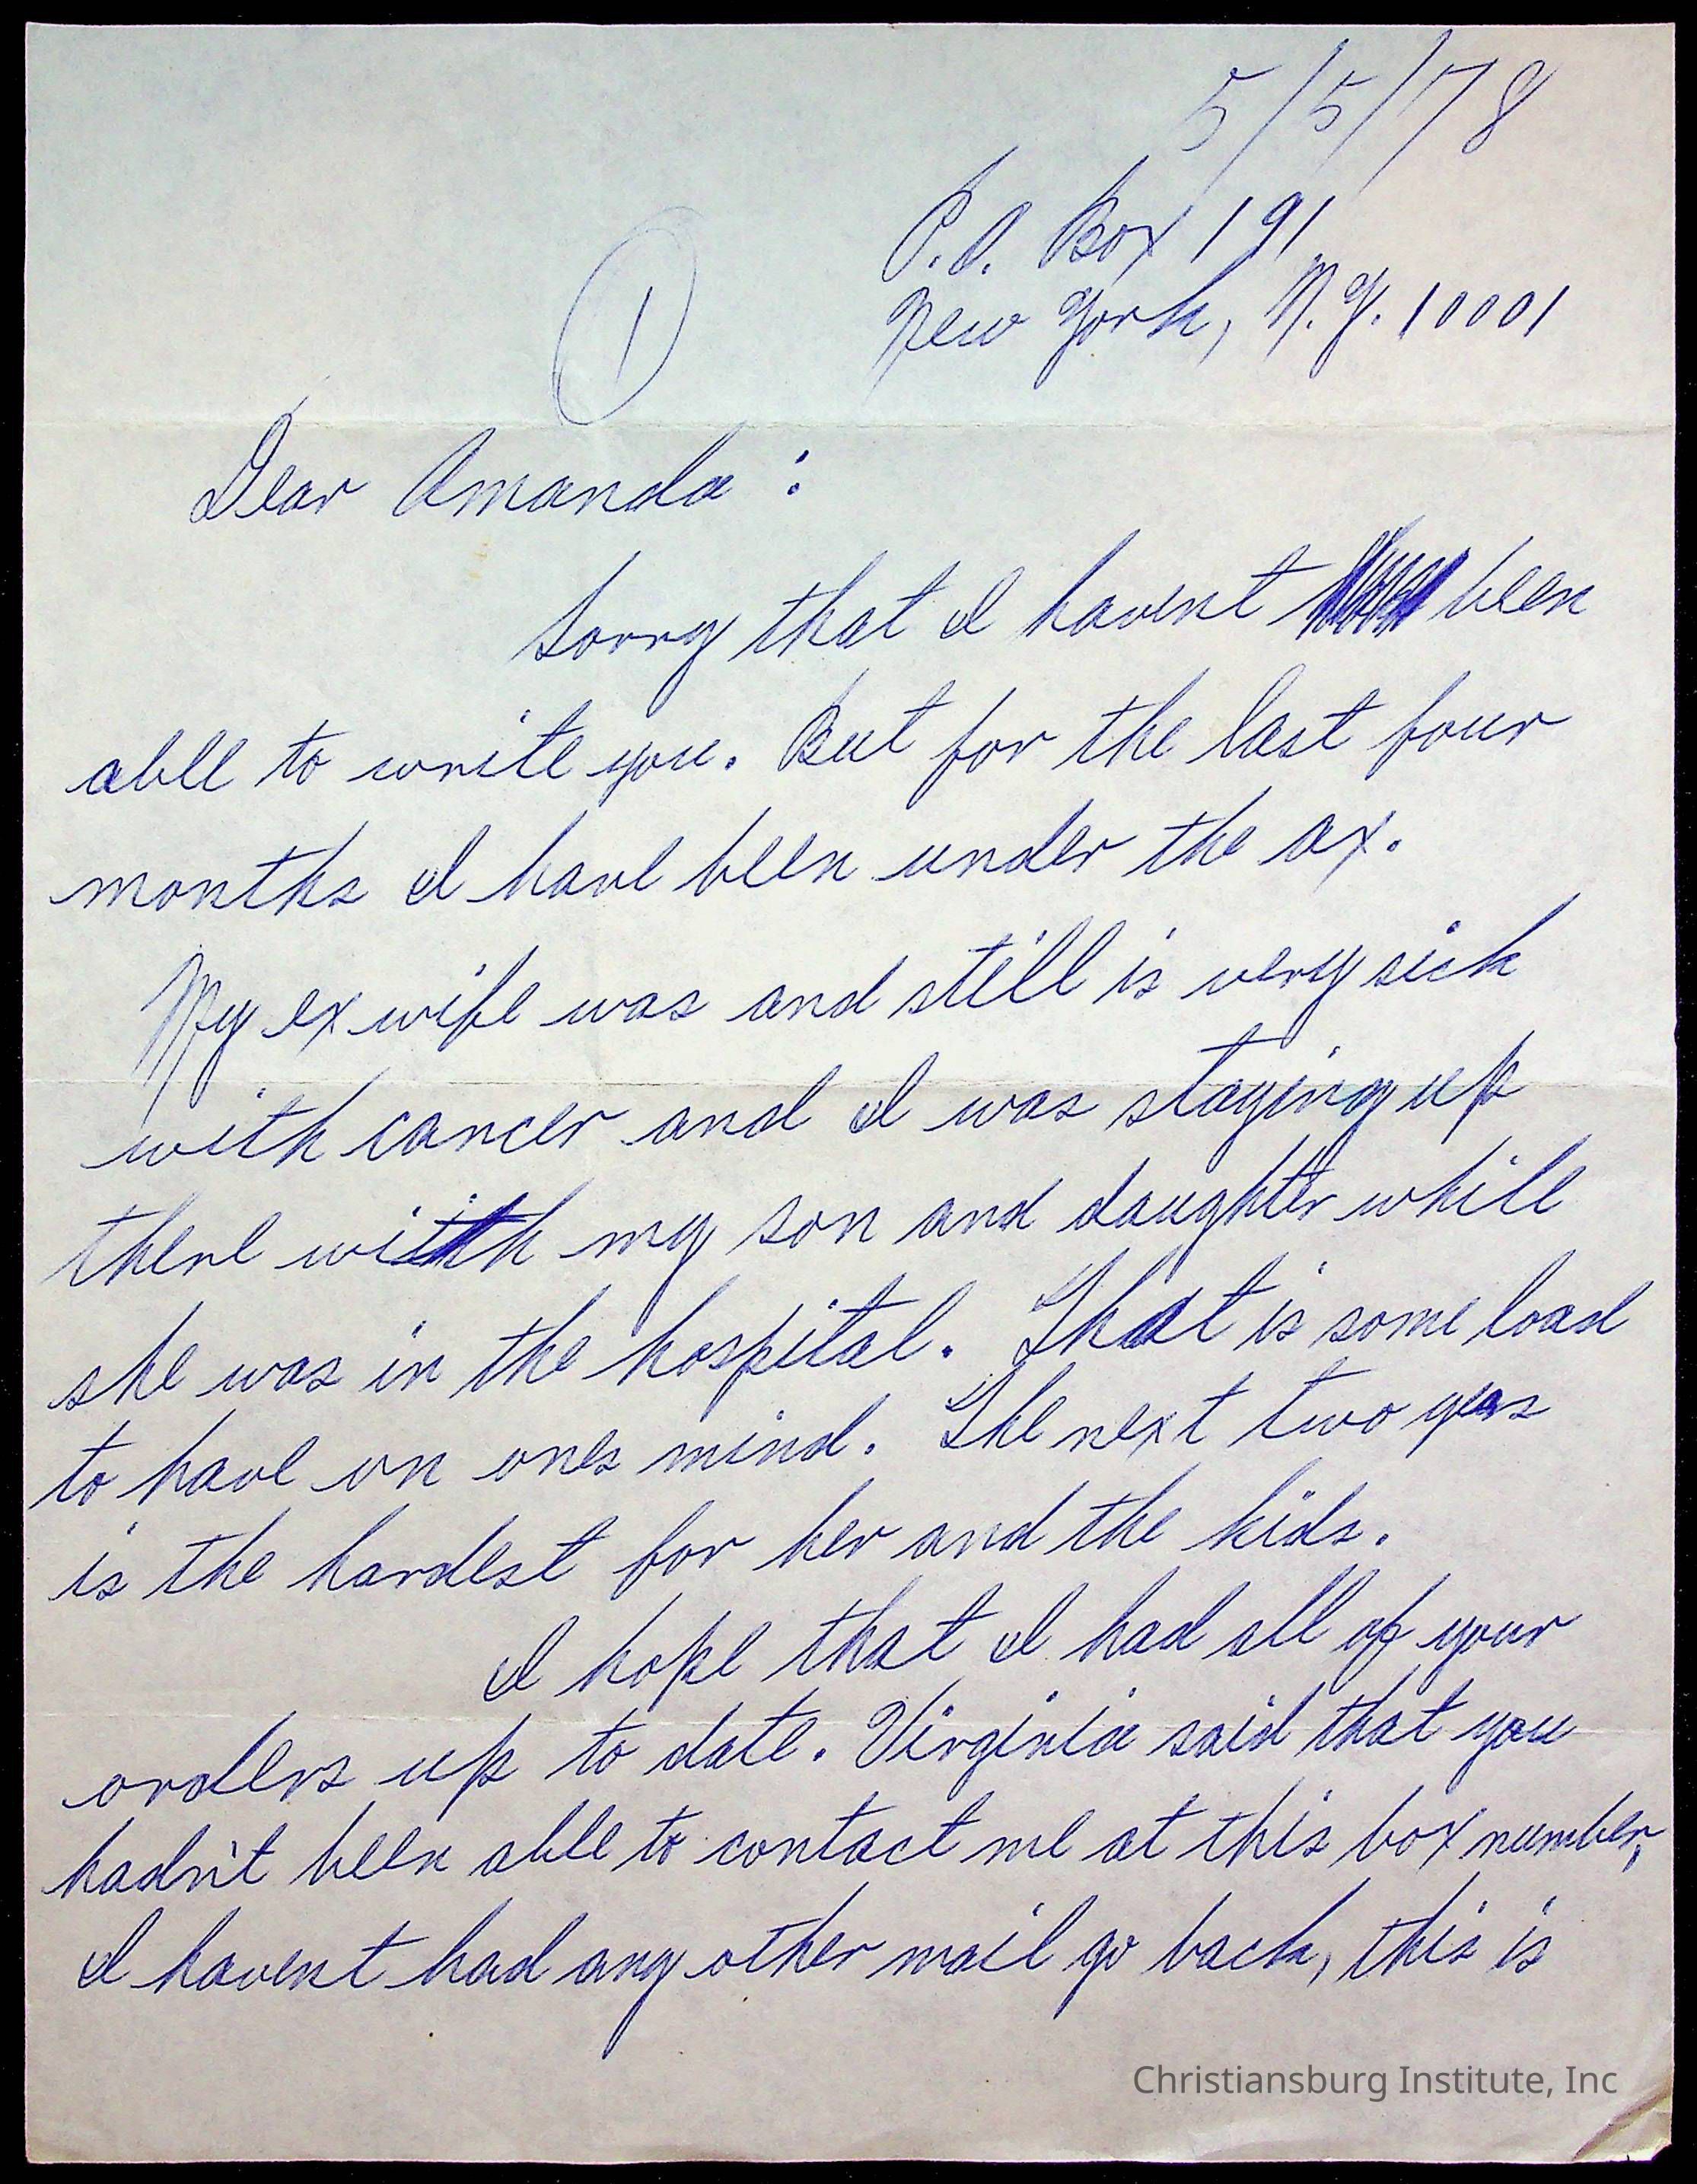 5/5/78
P.O. Box 191
New York, N.Y. 10001
1
Dear Amanda :
Sorry that I havent been
able to write you. But for the last four
months I have been under the ax.
My ex wife was and still is very sick
with cancer and I was staying up
there with my son and daughter while
she was in the hospital. That is some load
to have on ones mind. The next two yers
is the hardest for her and the kids.
I hope that I had all of your
orders up to date. Virginia said that you
hadn't been able to contact me at this box number,
I havent had any other mail go back, this is
Christiansburg Institute, Inc